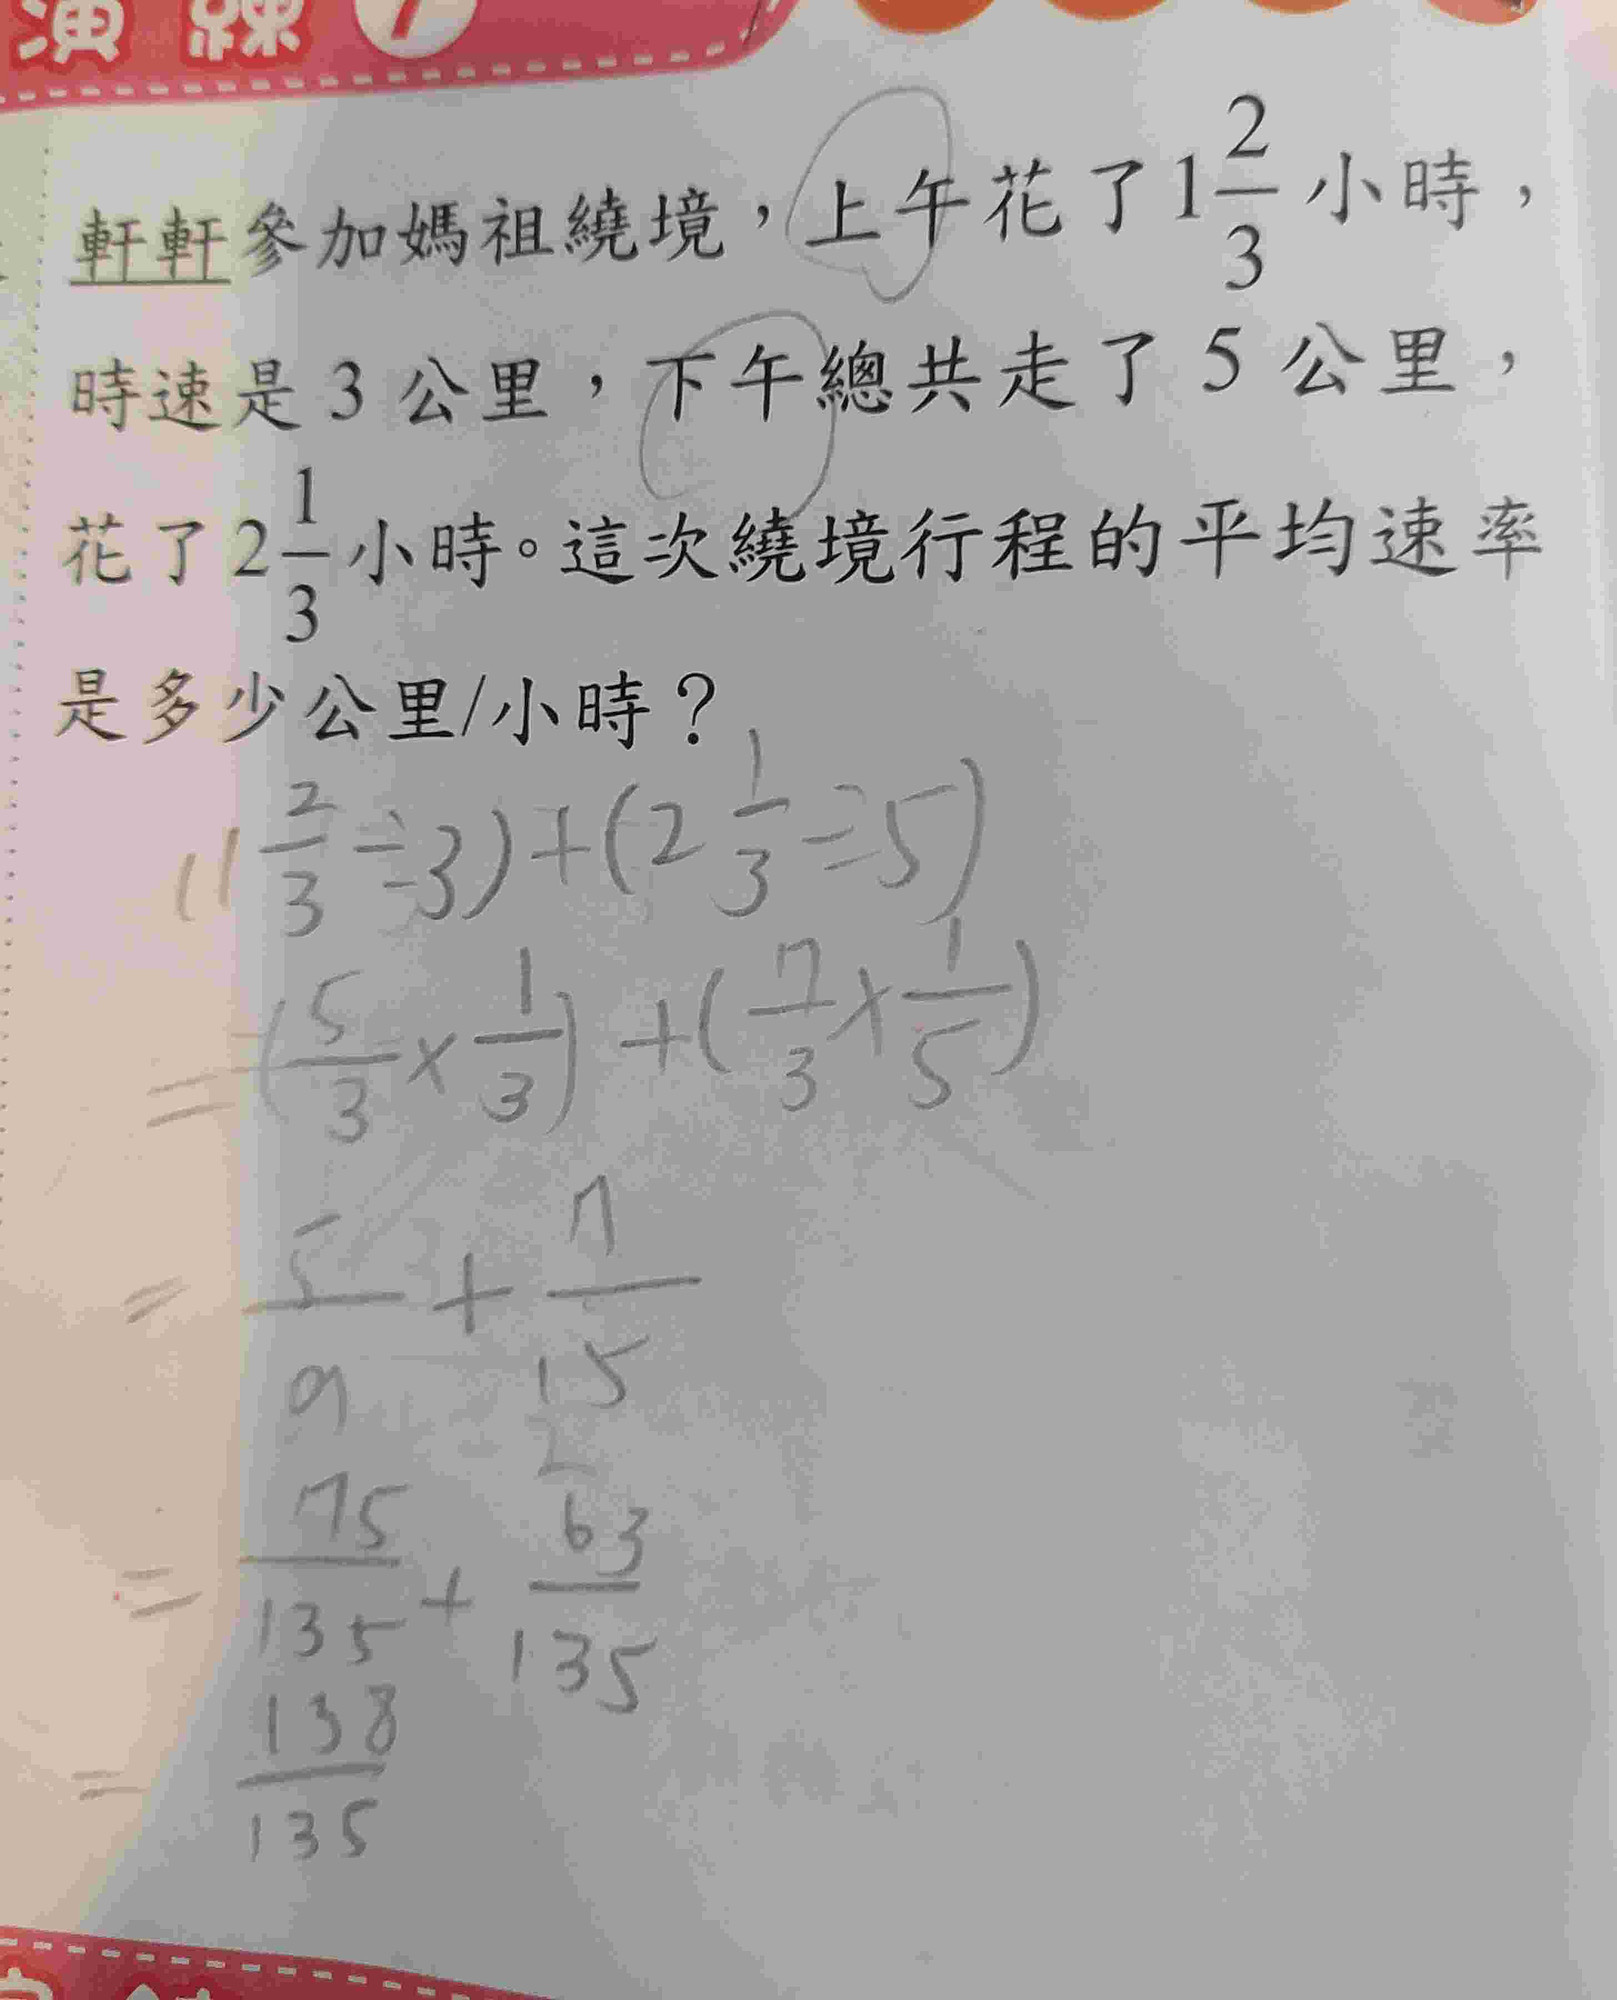 演練7
軒軒參加媽祖繞境，上午花了1 2/3 小時，
時速是 3 公里，下午總共走了 5 公里，
花了 2 1/3 小時。這次繞境行程的平均速率
是多少公里/小時？
(1 2/3 ÷3)+(2 1/3 ÷5)
=(5/3 × 1/3)+(7/3 × 1/5)
= 5/9 + 7/15
= 75/135 + 63/135
= 138/135